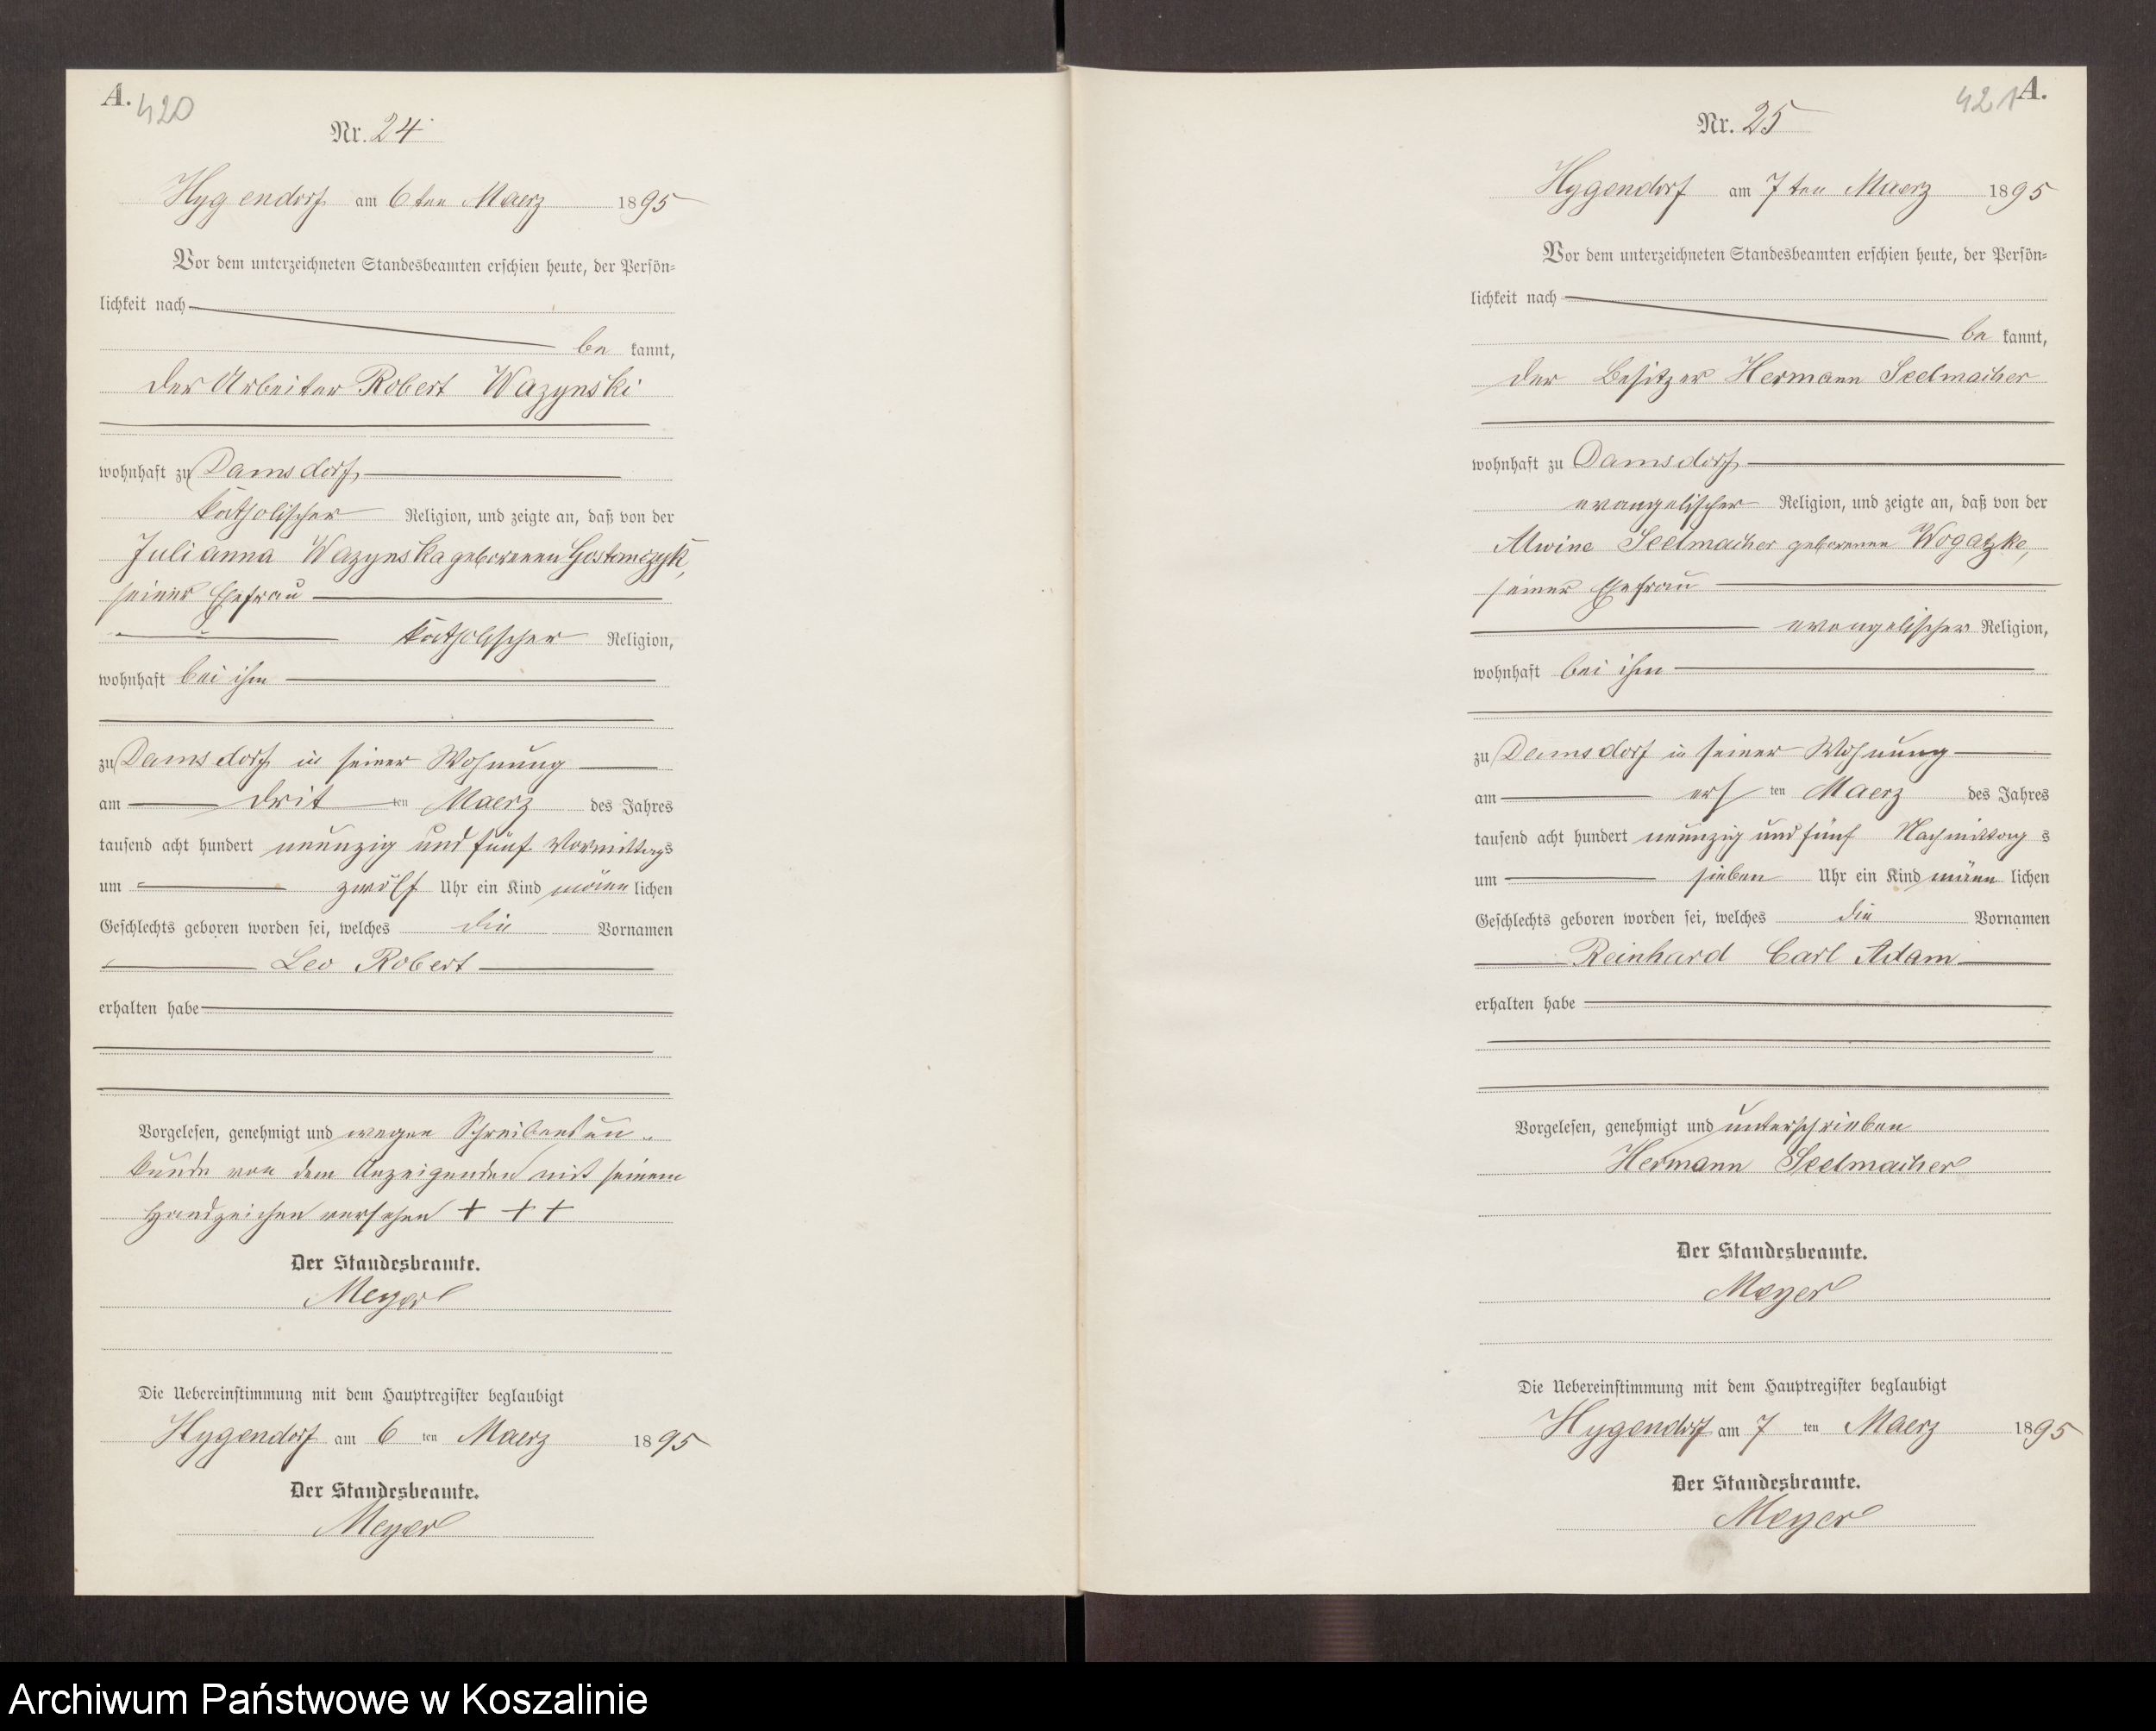 A.
420
Nr. 24
Hygendorf am 6ten Maerz 1895
Vor dem unterzeichneten Standesbeamten erschien heute, der Persön-
lichkeit nach
be kannt,
der Arbeiter Robert Wazynski
wohnhaft zu Damsdorf,
katholischer Religion, und zeigte an, daß von der
Julianna Wazynska geborenen Gostomczyk,
seiner Ehefrau
katholischer Religion,
wohnhaft bei ihm
zu Damsdorf in seiner Wohnung
am drit ten Maerz des Jahres
tausend acht hundert neunzig und fünf Vormittags
um zwölf Uhr ein Kind männ lichen
Geschlechts geboren worden sei, welches die Vornamen
Leo Robert
erhalten habe
Vorgelesen, genehmigt und wegen Schreibensun-
kunde von dem Anzeigenden mit seinem
Handzeichen versehen + + +
Der Standesbeamte.
Meyer
Die Uebereinstimmung mit dem Hauptregister beglaubigt
Hygendorf am 6 ten Maerz 1895
Der Standesbeamte.
Meyer
421
A.
Nr. 25
Hygendorf am 7ten Maerz 1895
Vor dem unterzeichneten Standesbeamten erschien heute, der Persön-
lichkeit nach
be kannt,
der Besitzer Hermann Seelmacher
wohnhaft zu Damsdorf,
evangelischer Religion, und zeigte an, daß von der
Alwine Seelmacher geborenen Wogatzke,
seiner Ehefrau
evangelischer Religion,
wohnhaft bei ihm
zu Damsdorf in seiner Wohnung
am ers ten Maerz des Jahres
tausend acht hundert neunzig und fünf Nachmittag s
um sieben Uhr ein Kind männ lichen
Geschlechts geboren worden sei, welches die Vornamen
Reinhard Carl Adam
erhalten habe
Vorgelesen, genehmigt und unterschrieben
Hermann Seelmacher
Der Standesbeamte.
Meyer
Die Uebereinstimmung mit dem Hauptregister beglaubigt
Hygendorf am 7 ten Maerz 1895
Der Standesbeamte.
Meyer
Archiwum Państwowe w Koszalinie